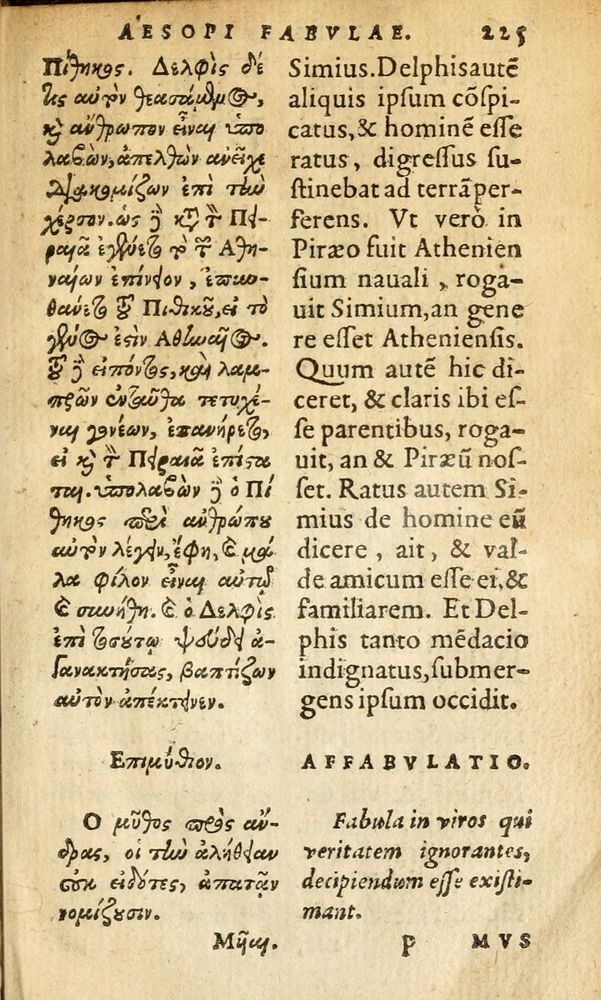 AESOPI FABVLAE. 225
Πίθηκος. Δελφὶς δέ
τις αὐτὸν θεασάμενος,
καὶ ἄνθρωπον εἶναι ὑπο
λαβὼν, ἀπελθὼν ἀνεῖχε
διακομίζων ἐπὶ τὴν
χέρσον. ὡς δὲ κατὰ τὸν Πει-
ραιᾶ ἐγένετο τὸ τῶν Ἀθη-
ναίων ἐπίνειον, ἐπυν-
θάνετο τοῦ Πιθίκου, εἰ τὸ
γένος ἐςὶν Ἀθηναῖος.
τοῦ δὲ εἰπόντος, καὶ λαμ-
πρῶν ἐνταῦθα τετυχέ-
ναι γονέων, ἐπανήρετο,
εἰ καὶ τὸν Πειραιᾶ ἐπίςα
ται. ὑπολαβὼν δὲ ὁ Πί
θηκος περὶ ἀνθρώπου
αὐτὸν λέγειν, ἔφη, καὶ μά-
λα φίλον εἶναι αὐτῷ
καὶ συνήθη. καὶ ὁ Δελφὶς
ἐπὶ τοσούτῳ ψεύδει ἀ-
γανακτήσας, βαπτίζων
αὐτὸν ἀπέκτεινεν.
Ἐπιμύθιον.
Ὁ μῦθος πρὸς ἄν-
δρας, οἳ τὴν ἀλήθειαν
οὐκ εἰδότες, ἀπατᾷν
νομίζουσιν.
Simius. Delphis autē
aliquis ipsum cōspi-
catus, & hominē esse
ratus, digressus su-
stinebat ad terrā per-
ferens. Vt verò in
Piræo fuit Athenien
sium nauali, roga-
uit Simium, an gene
re esset Atheniensis.
Quum autē hic di-
ceret, & claris ibi es-
se parentibus, roga-
uit, an & Piræū nos-
set. Ratus autem Si-
mius de homine eū
dicere, ait, & val-
de amicum esse ei, &
familiarem. Et Del-
phis tanto mēdacio
indignatus, submer-
gens ipsum occidit.
AFFABVLATIO.
Fabula in viros qui
veritatem ignorantes,
decipiendum esse existi-
mant.
Μῦαι. p MVS